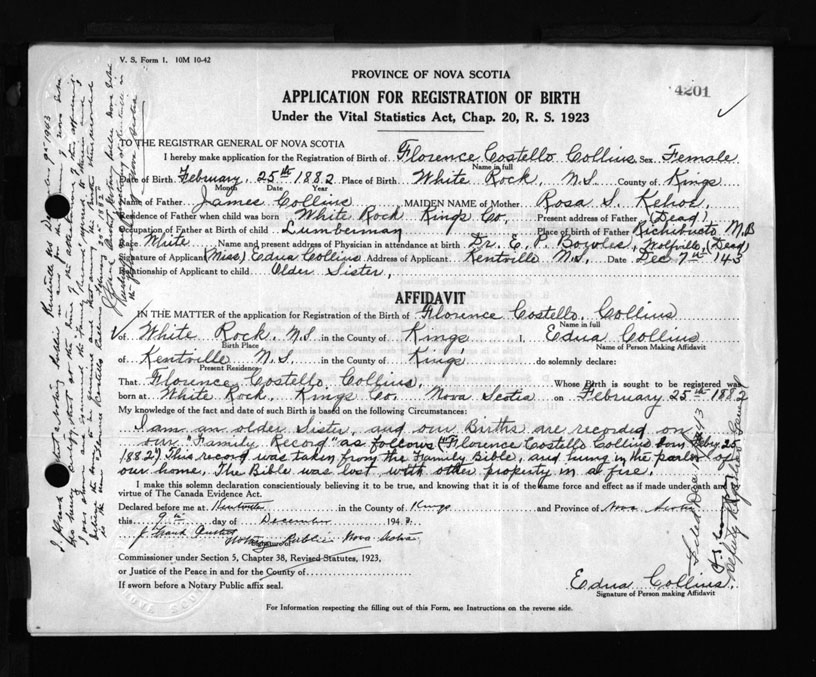 V. S. Form 1. 10M 10-42
PROVINCE OF NOVA SCOTIA
4201
APPLICATION FOR REGISTRATION OF BIRTH
Under the Vital Statistics Act, Chap. 20, R. S. 1923
TO THE REGISTRAR GENERAL OF NOVA SCOTIA
I hereby make application for the Registration of Birth of Florence Costello Collins Sex Female
Name in full
Date of Birth February 25th 1882 Place of Birth White Rock, N.S. County of Kings
Month Date Year
Name of Father James Collins MAIDEN NAME of Mother Rosa S. Kehoe,
Residence of Father when child was born White Rock Kings Co. Present address of Father (Dead)
Occupation of Father at Birth of child Lumberman Place of birth of Father Richibucto N.B
Race White Name and present address of Physician in attendance at birth Dr. E. P. Bowles, Wolfville, (Dead)
Signature of Applicant (Miss) Edna Collins Address of Applicant Kentville N.S. Date Dec 7th 143
Relationship of Applicant to child Older Sister,
AFFIDAVIT
IN THE MATTER of the application for Registration of the Birth of Florence Costello Collins
Name in full
of White Rock, N.S. in the County of Kings I, Edna Collins
Birth Place Name of Person Making Affidavit
of Kentville N.S. in the County of Kings do solemnly declare:
Present Residence
That Florence Costello Collins, Whose Birth is sought to be registered was
born at White Rock, Kings Co. Nova Scotia on February 25th 1882
My knowledge of the fact and date of such Birth is based on the following Circumstances:
I am an older Sister, and our Births are recorded on
our "Family Record" as follows ("Florence Costello Collins Born Feby 25
1882") This record was taken from the Family Bible, and hung in the parlor of
our home. The Bible was lost with other property in a fire.
I make this solemn declaration conscientiously believing it to be true, and knowing that it is of the same force and effect as if made under oath and by
virtue of The Canada Evidence Act.
Declared before me at Kentville in the County of Kings and Province of Nova Scotia
this 9th day of December 1943.
J. Frank
Notary Public Nova Scotia
Signature of
Commissioner under Section 5, Chapter 38, Revised Statutes, 1923,
or Justice of the Peace in and for the County of
If sworn before a Notary Public affix seal.
Edna Collins.
Signature of Person making Affidavit
For Information respecting the filling out of this Form, see Instructions on the reverse side.
Filed Dec
Deputy Registrar General